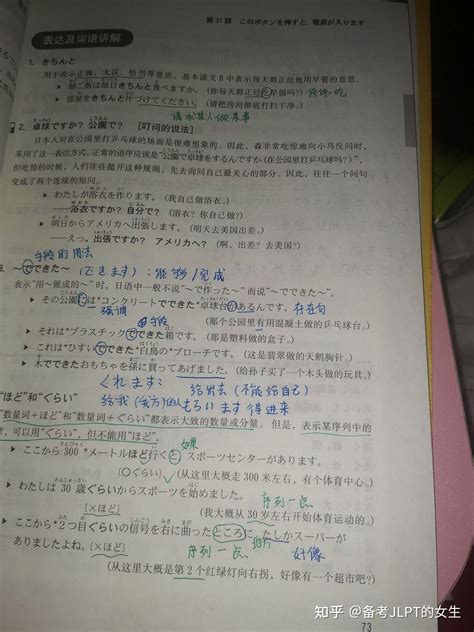 第 31 課　このボタンを押すと，電源が入ります
表达及词语讲解
1. きちんと
用于表示正确、无误、恰当等意思。基本课文 B 中表示每天都正经地用早餐的意思。
▶ 朝ご飯は毎日きちんと食べますか。(你每天都正经吃早餐吗?) 好好地吃
▶ 部屋をきちんと片づけてください。(请把房间彻底打扫干净。)
请求某人做某事
2. 卓球ですか? 公園で? [叮问的说法]
日本人对在公园里打乒乓球的场面是很难想象的。因此，森非常吃惊地向小马反问时，
采用了这一表达方式。正常的语序应该是“公園で卓球をするんですか(在公园里打乒乓球吗?)”，
但吃惊的时候，人们往往抛开这种规则，先去询问自己最关心的部分。因此，往往一个问句
变成了两个连续的短问。
▶ わたしが浴衣を作ります。(我自己做浴衣。)
——浴衣ですか? 自分で? (浴衣? 你自己做?)
▶ 明日からアメリカへ出張します。(明天去美国出差。)
——えっ。出張ですか? アメリカへ? (啊，出差? 去美国?)
手段的用法
3. ～でできた～ (できます)：能够/完成
表示“用～做成的～”时，日语中一般不说“～で作った～”而说“～でできた～”。
▶ その公園には“コンクリートでできた”卓球台があるんです。存在句
强调
(那个公园里有用混凝土做的乒乓球台。)
手段
▶ それは“プラスチックでできた箱です。(那是塑料做的盒子。)
▶ これは“ひすいでできた”白鳥の“ブローチです。(这是翡翠做的天鹅胸针。)
▶ 木でできたおもちゃを孫に買ってあげました。(给孙子买了一个木头做的玩具。)
くれます： 给出去 (不能给自己)
给我 (我方)的人 もらいます 得进来
“ほど”和“ぐらい”
“数量词＋ほど”和“数量词＋ぐらい”都表示大致的数量或分量。但是，表示某序列中的
，可以用“ぐらい”，但不能用“ほど”。
如果
▶ ここから 300 *メートルほど行くと スポーツセンターがあります。
[○ぐらい] (从这里大概走 300 米左右，有个体育中心。)
▶ わたしは 30 歳ぐらいからスポーツを始めました。 序列一点
[×ほど] (我大概从 30 岁左右开始体育运动的。)
▶ ここから*2つ目ぐらいの信号を右に曲ったところに，たしかスーパーが
ありましたよね。[×ほど] 序列一点 好像
(从这里大概是第 2 个红绿灯向右拐，好像有一个超市吧?)
73
知乎 @备考JLPT的女生